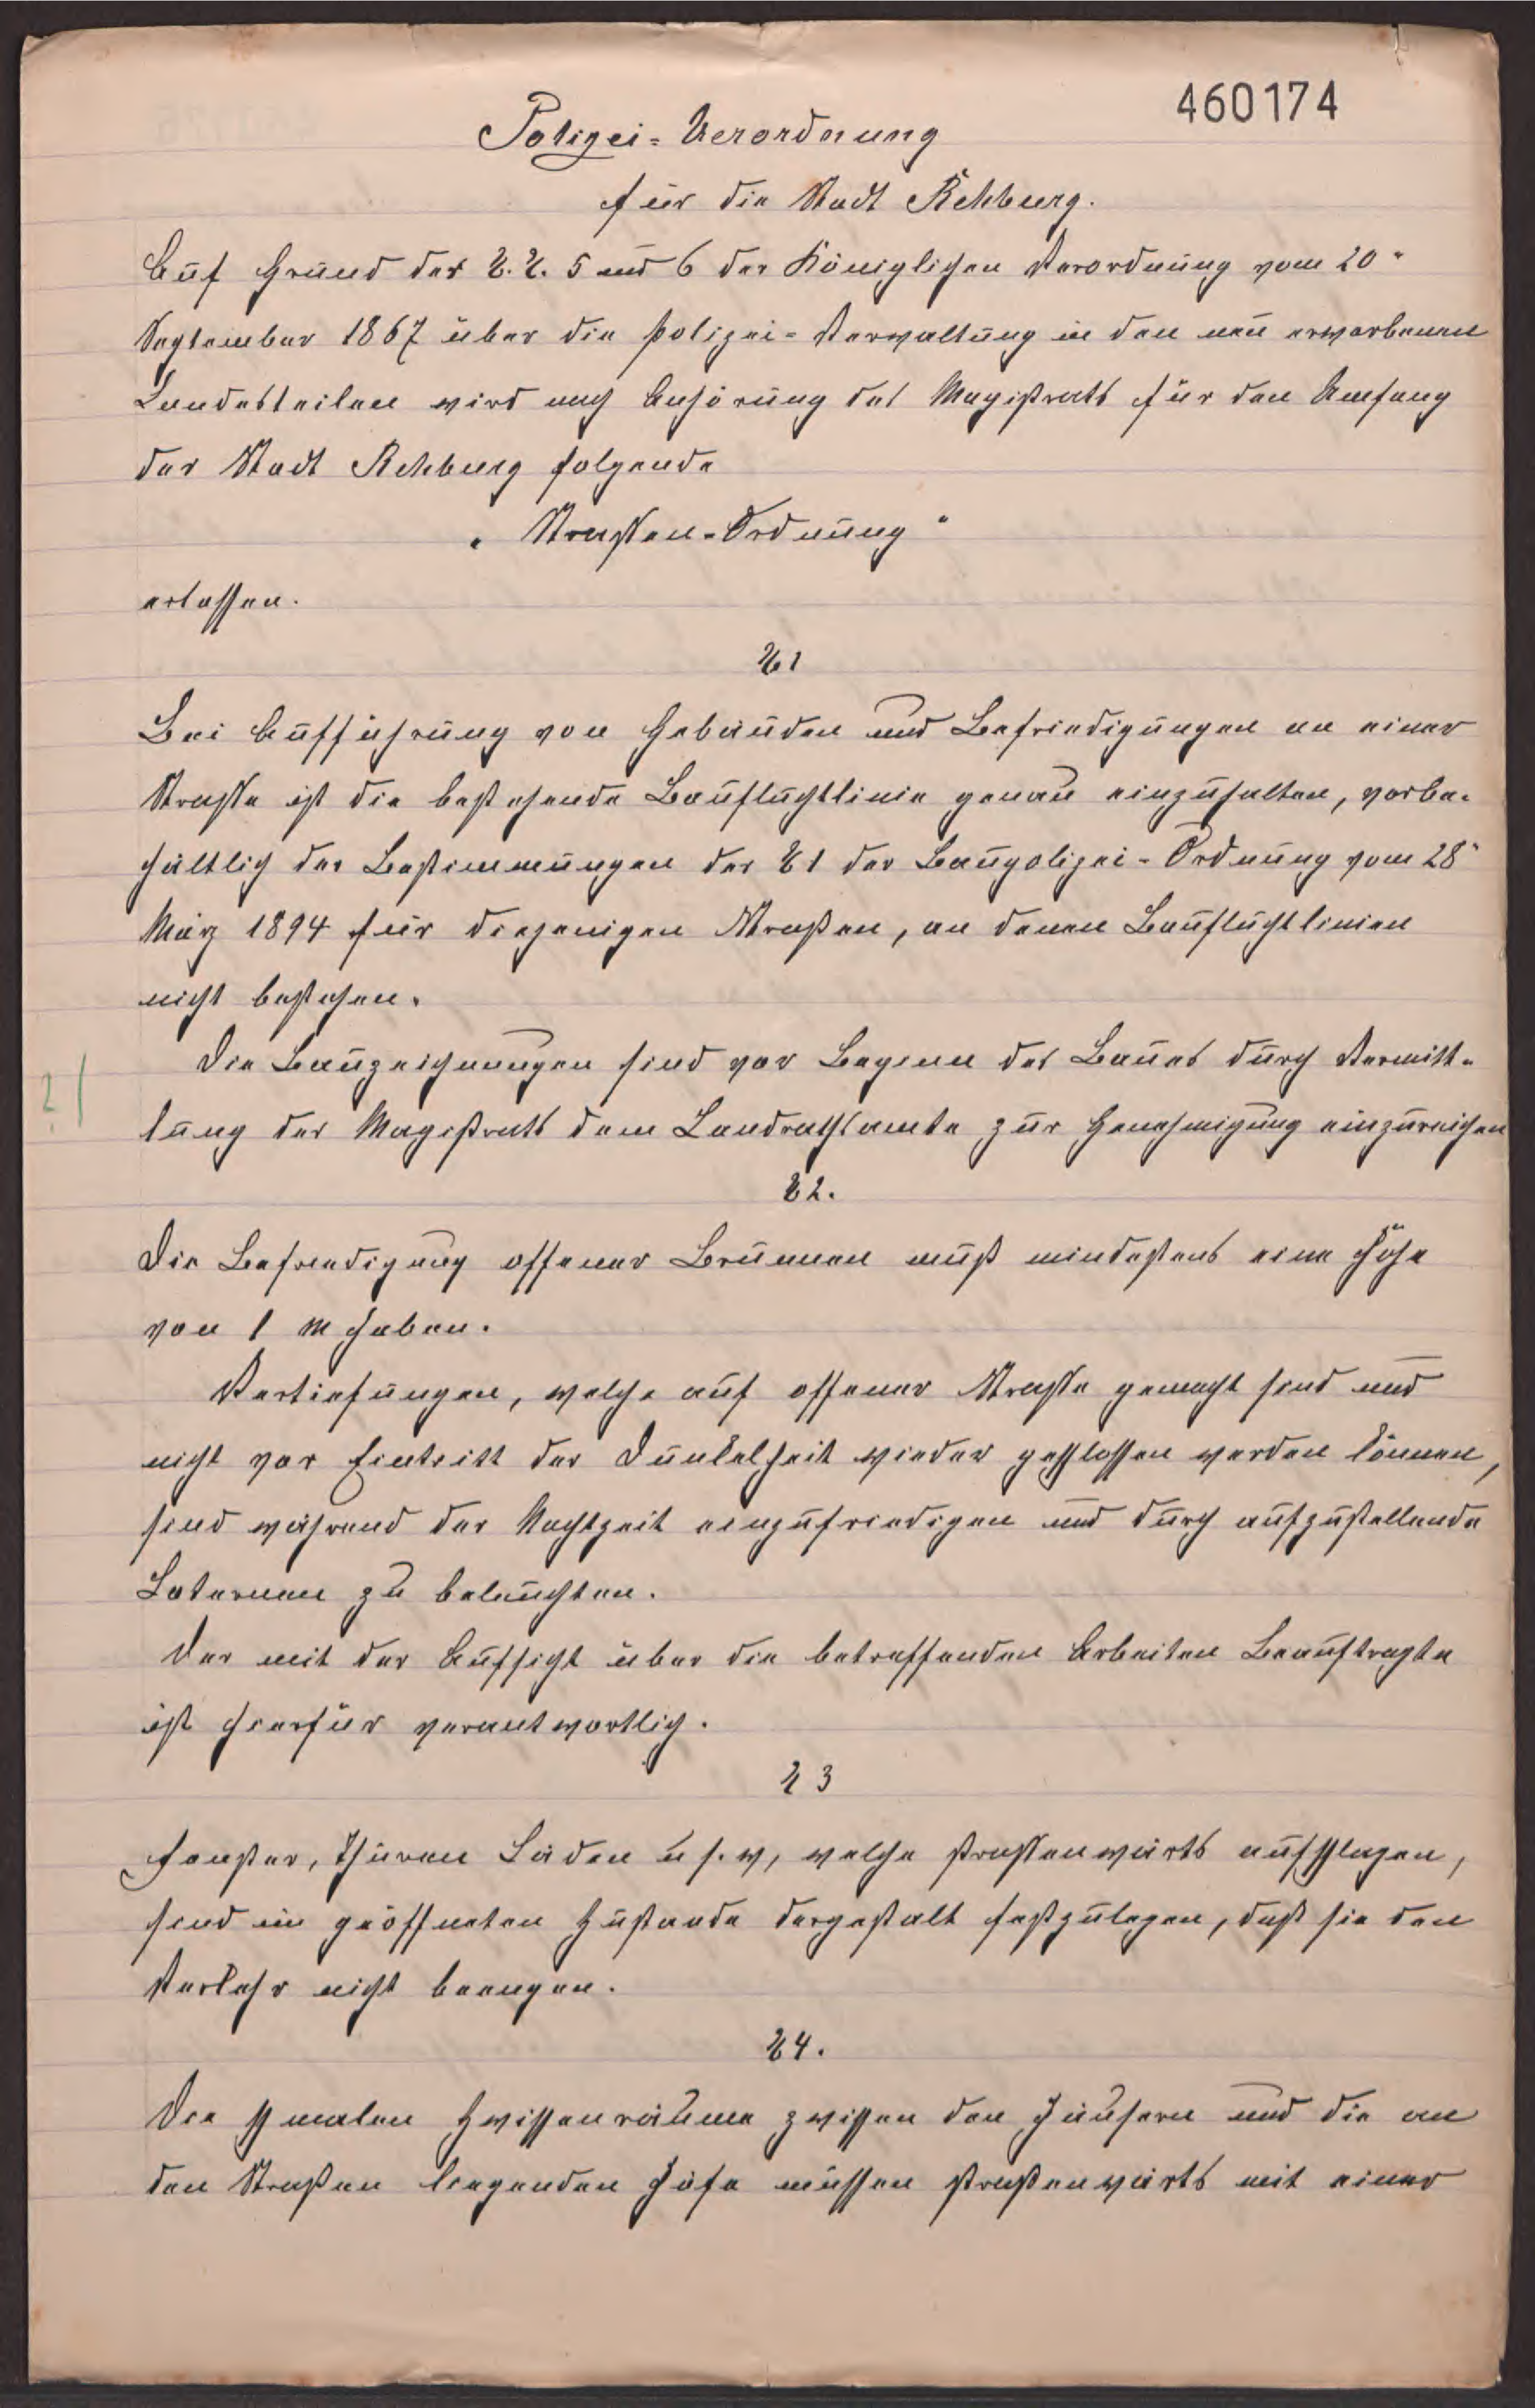 460174
Polizei-Verordnung
für die Stadt Rehburg.
Auf Grund der §.§. 5 und 6 der Königlichen Verordnung vom 20"
September 1867 über die Polizei-Verwaltung in den neu erworbenen
Landesteilen wird nach Anhörung des Magistrats für den Umfang
der Stadt Rehburg folgende
„Strassen-Ordnung"
erlassen.
§1
Bei Aufführung von Gebäuden und Befriedigungen an einer
Strasse ist die bestehende Baufluchtlinie genau einzuhalten, vorbe-
hältlich der Bestimmungen der §1 der Baupolizei-Ordnung vom 28"
März 1894 für diejenigen Straßen, an denen Baufluchtlinien
nicht bestehen.
Die Bauzeichnungen sind vor Beginn des Baues durch Vermitt-
?|
lung des Magistrats dem Landrathsamte zur Genehmigung einzureichen
§2.
Die Befriedigung offener Brunnen muß mindestens eine Höhe
von 1 m haben.
Vertiefungen, welche auf offener Strasse gemacht sind und
nicht vor Eintritt der Dunkelheit wieder geschlossen werden können,
sind während der Nachtzeit einzufriedigen und durch aufzustellende
Laternen zu beleuchten.
Der mit der Aufsicht über die betreffenden Arbeiten Beauftragte
ist hierfür verantwortlich.
§3
Fenster, Thüren Läden u s. w, welche strassenwärts aufschlagen,
sind im geöffneten Zustande dergestalt festzulegen, daß sie den
Verkehr nicht beengen.
§4.
Die schmalen Zwischenräume zwischen den Häusern und die an
den Straßen liegenden Höfe müssen straßenwärts mit einer